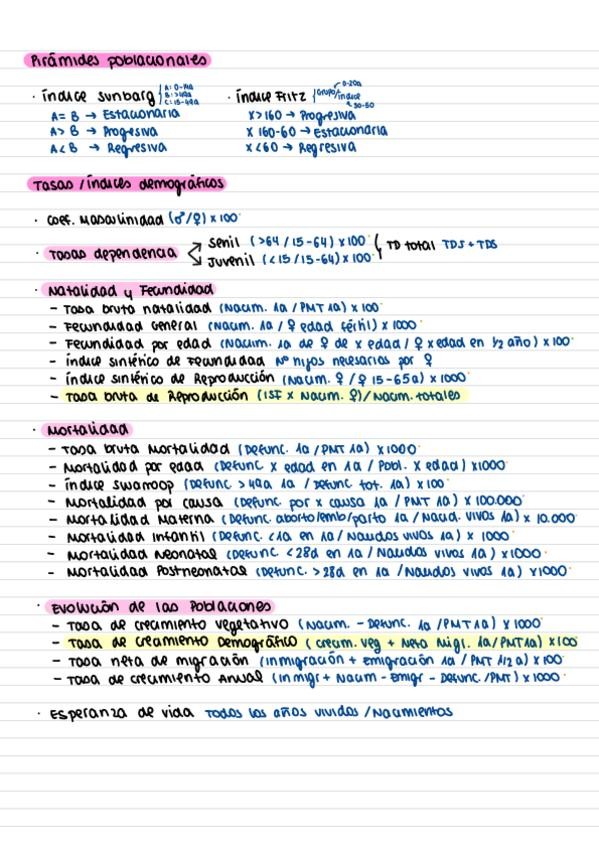 Pirámides poblacionales
· índice sunbarg { A: 0-14a B: >49a C: 15-49a · índice Fritz { Grupo/índice 0-20a 30-50
A = B → Estacionaria x > 160 → Progresiva
A > B → Progresiva x 160-60 → Estacionaria
A < B → Regresiva x < 60 → Regresiva
Tasas / índices demográficos
· Coef. Masculinidad (♂/♀) x 100
· Tasas dependencia Senil (>64 / 15-64) x 100 TD total TDS + TDS
Juvenil (<15 / 15-64) x 100
· Natalidad y Fecundidad
- Tasa bruta natalidad (Nacim. 1a / PMT 1a) x 100
- Fecundidad General (Nacim. 1a / ♀ edad fértil) x 1000
- Fecundidad por edad (Nacim. 1a de ♀ de x edad / ♀ x edad en 1/2 año) x 100
- índice sintético de Fecundidad Nº hijos necesarios por ♀
- índice sintético de Reproducción (Nacim. ♀ / ♀ 15-65a) x 1000
- Tasa bruta de Reproducción (ISF x Nacim. ♀) / Nacim. totales
· Mortalidad
- Tasa bruta Mortalidad (Defunc. 1a / PMT 1a) x 1000
- Mortalidad por edad (Defunc x edad en 1a / Pobl. x edad) x 1000
- índice swaroop (Defunc > 49a 1a / Defunc tot. 1a) x 100
- Mortalidad por causa (Defunc. por x causa 1a / PMT 1a) x 100.000
- Mortalidad Materna (Defunc. aborto/emb/parto 1a / Nacid. vivos 1a) x 10.000
- Mortalidad Infantil (Defunc. <1a en 1a / Nacidos vivos 1a) x 1000
- Mortalidad Neonatal (Defunc <28d en 1a / Nacidos vivos 1a) x 1000
- Mortalidad Postneonatal (Defunc. >28d en 1a / Nacidos vivos 1a) x 1000
· Evolución de las Poblaciones
- Tasa de crecimiento vegetativo (Nacim. - Defunc. 1a / PMT 1a) x 1000
- Tasa de crecimiento Demográfico (crecim. veg + Neta Migr. 1a / PMT 1a) x 100
- Tasa neta de migración (inmigración + emigración 1a / PMT 1/2 a) x 100
- Tasa de crecimiento Anual (inmigr + Nacim - Emigr - Defunc. / PMT) x 1000
· Esperanza de vida Todos los años vividos / Nacimientos